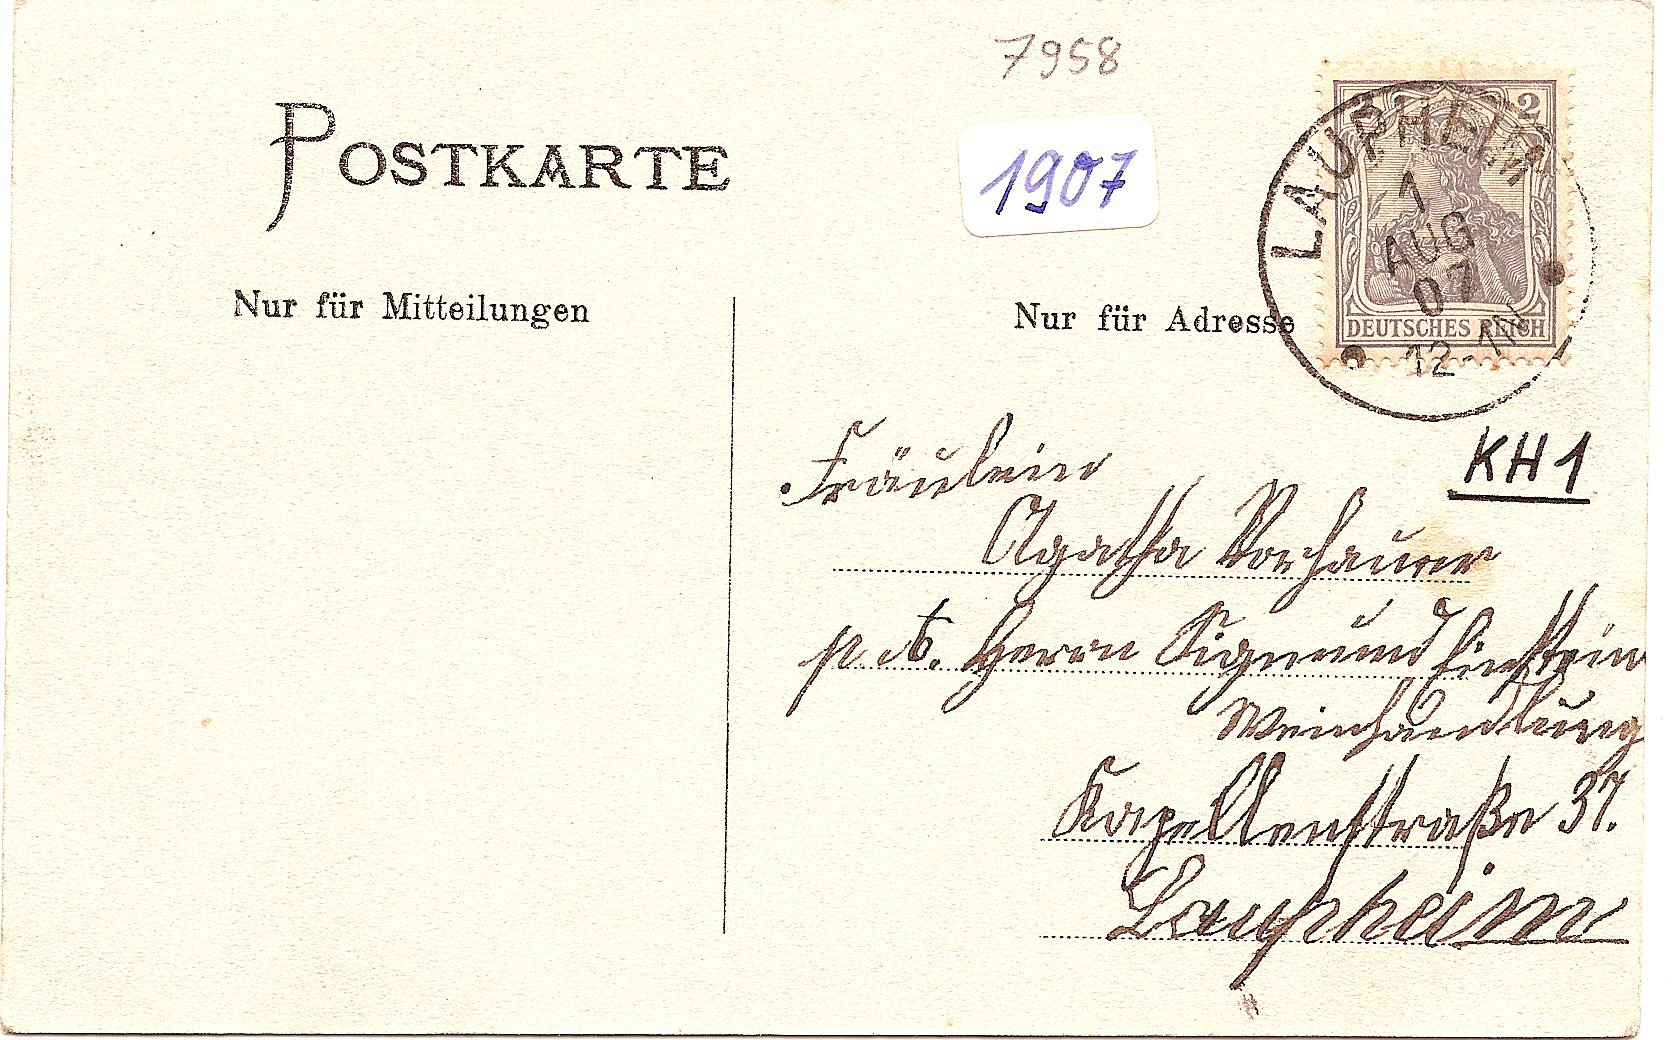 7958
POSTKARTE
1907
2 2
LAUPHEIM
1
AUG
07
12-1N
DEUTSCHES REICH
Nur für Mitteilungen
Nur für Adresse
KH1
Fräulein
Agatha
p. A. Herrn Sigmund Einstein
Weinhandlung
Kapellenstraße 37.
Laupheim